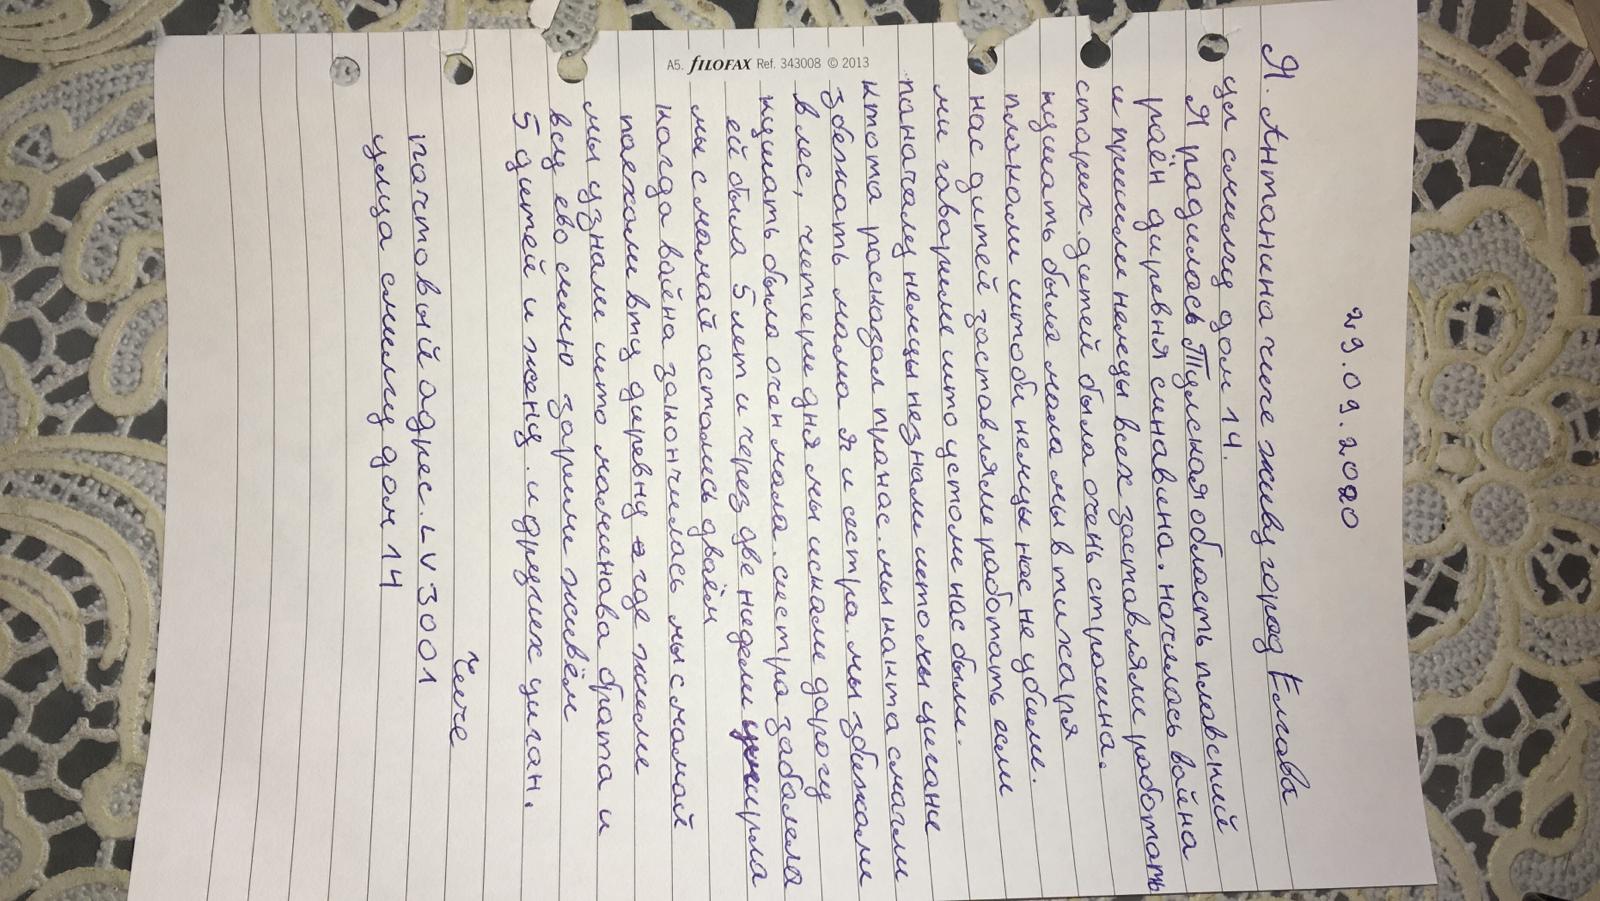 29.09.2020
Я. Антанина чиче живу горад Елгава
ул смилгу дом 14.
Я радилась Тулская область плавский
раён диревня синавина. началась война
и пришли немцы всех заставляли работать
старих детей была очень страшна.
кушать была мала мы в тихаря
плакали штоби немцы нас не убили.
нас дитей заставляли работать если
ми гаварили што устали нас били.
паначалу немцы незнали што мы цигане
ктота расказал пранас. мы какта смагли
збежать мама я и сестра. мы збижали
в лес, четыре дня мы искали дарогу
кушать была очен мала. систра забалела
ей была 5 лет и через две недели умирла
мы с мамай астались дваём
когда война закончилась мы с мамай
паехали вту диревну где жили
мы узнали што маминава брата и
всу ево симю зарили живём
5 дитей и жену. и других циган.
чиче
почтовый адрес. LV 3001
улица смилгу дом 14
A5. FILOFAX Ref. 343008 © 2013